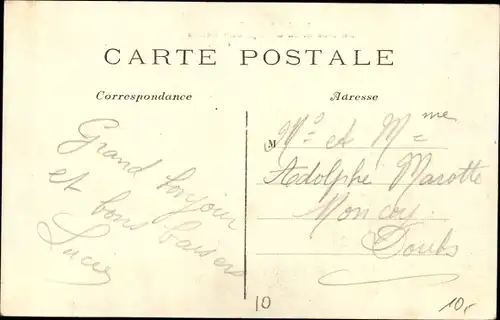 CARTE POSTALE
Correspondance
Adresse
Grand bonjour
et bons baisers
Lucie
M
Mr et Mme
Adolphe Marotte
Moncey
Doubs
10
10,-